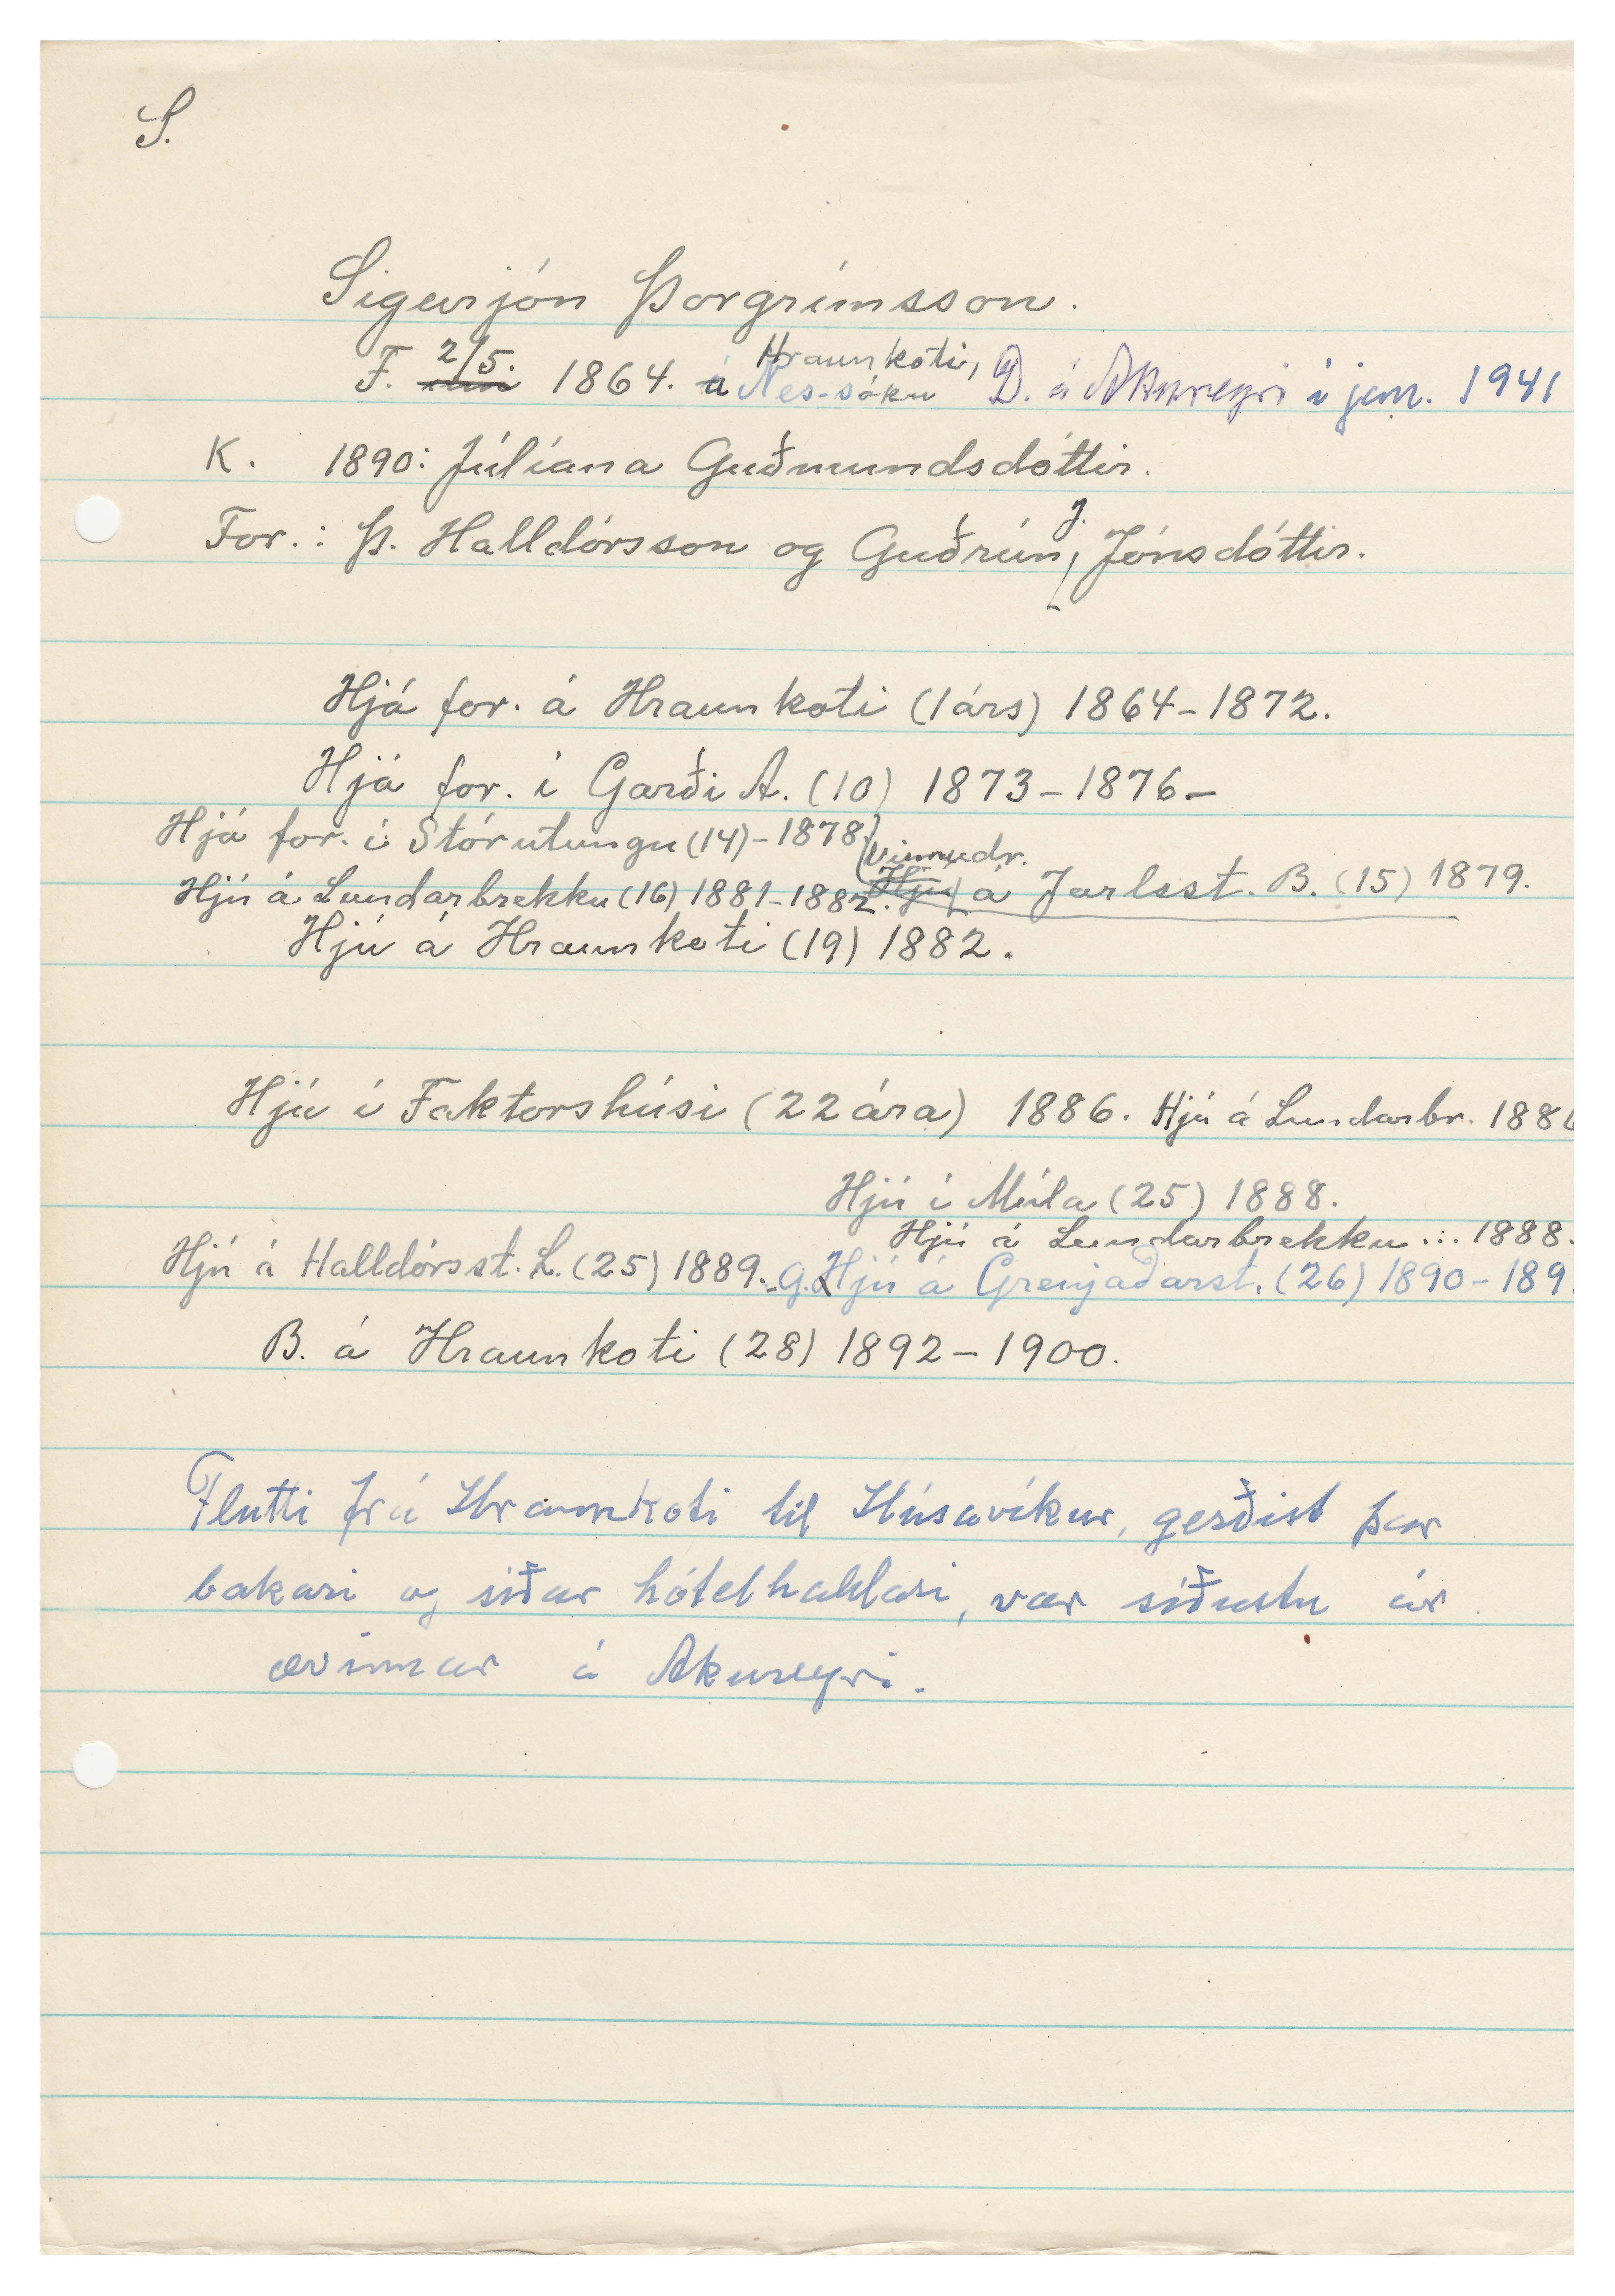 S.
Sigurjón Þorgrímsson.
F. 2/5. 1864. á Hraunkoti, Nes-sókn D. á Akureyri í jan. 1941
K. 1890: Júlíana Guðmundsdóttir.
For.: Þ. Halldórsson og Guðrún J. Jónsdóttir.
Hjá for. á Hraunkoti (1árs) 1864-1872.
Hjá for. í Garði A. (10) 1873-1876-
Hjá for. í Stórutungu (14)-1878.
Vinnudr. á Jarlsst. B. (15) 1879.
Hjú á Lundarbrekku (16) 1881-1882.
Hjú á Hraunkoti (19) 1882.
Hjú í Faktorshúsi (22 ára) 1886. Hjú á Lundarbr. 1886
Hjú í Múla (25) 1888.
Hjú á Lundarbrekku ... 1888.
Hjú á Halldórsst. L. (25) 1889. G. Hjú á Grenjaðarst. (26) 1890-189
B. á Hraunkoti (28) 1892-1900.
Flutti frá Hraunkoti til Húsavíkur, gerðist þar
bakari og síðar hótelhaldari, var síðustu ár
ævinnar á Akureyri.